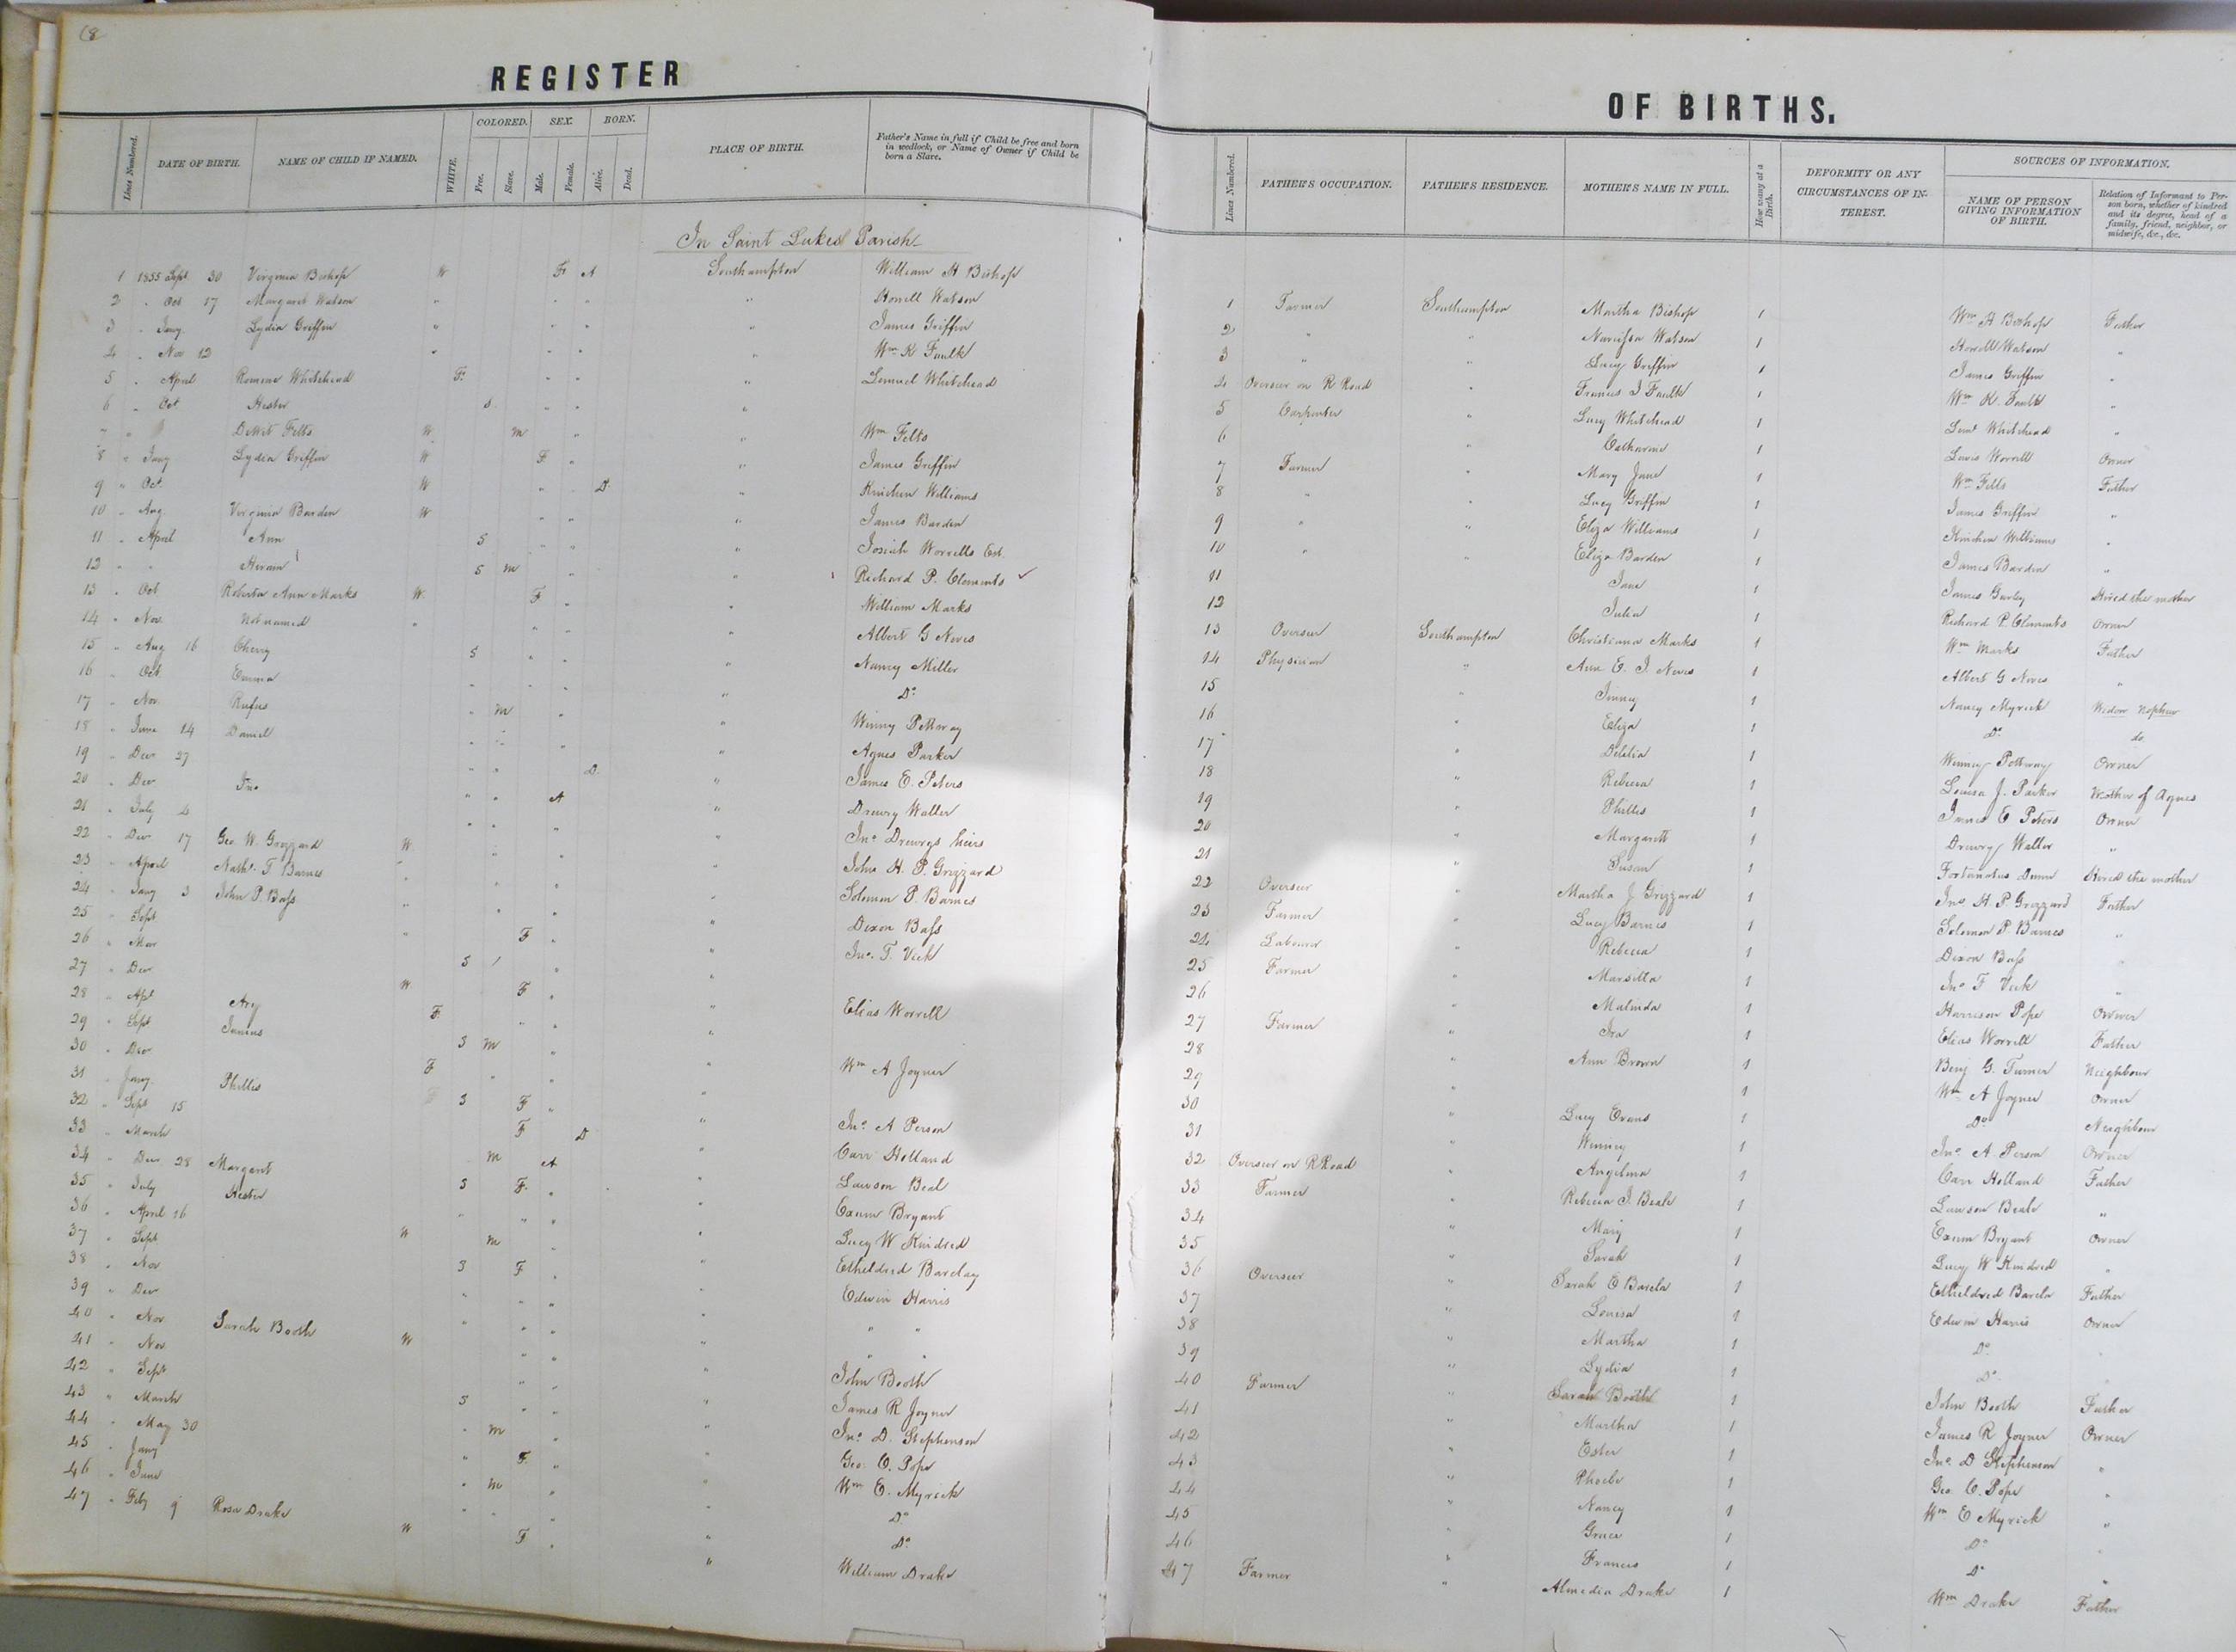 68
REGISTER
Lines Numbered. DATE OF BIRTH. NAME OF CHILD IF NAMED. WHITE. COLORED. Free. Slave. SEX. Male. Female. BORN. Alive. Dead. PLACE OF BIRTH. Father's Name in full if Child be free and born in wedlock, or Name of Owner if Child be born a Slave.
In Saint Lukes Parish
1 1855 Sept 30 Virginia Bishop W F A Southampton William H Bishop
2 " Oct 17 Margaret Watson " " " " Howell Watson
3 " Jany. Lydia Griffin " " " " James Griffin
4 " Nov 12 " " " " Wm K Faulk
5 " April Romine Whitehead F " " " Lemuel Whitehead
6 " Oct. Hester S " " "
7 " " DeWit Felts W M " " Wm Felts
8 " Jany Lydia Griffin W F " " James Griffin
9 " Oct. W " D " Kinchen Williams
10 " Aug Virginia Barden W " " " James Barden
11 " April Ann S " " " Josiah Worrells Est.
12 " " Hiram S M " " Richard P. Clements ✓
13 " Oct Roberta Ann Marks W F " " William Marks
14 " Nov. Not named " " " " Albert G Neves
15 " Aug 16 Cherry S " " " Nancy Miller
16 " Oct. Emma " " " " Do
17 " Nov. Rufus " M " " Winny Pethway
18 " June 14 Daniel " " " " Agnes Parker
19 " Dec 27 " " D " James E. Peters
20 " Dec Jno " " A " Drewry Walter
21 " July 4 " " " " Jno Drewrys heirs
22 " Dec 17 Geo. W. Grizzard W " " " John H. P. Grizzard
23 " April Nathl. T Barnes " " " " Solomon P. Barnes
24 " Jany 3 John P. Bass " " " " Dixon Bass
25 " Sept " F " " Jno. T. Vick
26 " Mar S " "
27 " Dec W F " " Elias Worrell
28 " Apl Ary F " " "
29 " Sept Junius S M " " Wm A Joyner
30 " Dec F " " "
31 " Jany. Phillis S F " " Jno. A Person
32 " Sept 15 F D " Carr Holland
33 " March M A " Lawson Beal
34 " Dec 28 Margaret S F " " Exum Bryant
35 " July Hester " " " " Lucy W Kindred
36 " April 16 W M " " Etheldred Barclay
37 " Sept S F " " Edwin Harris
38 " Nov " " " " "
39 " Dec " " " " "
40 " Nov Sarah Booth W " " " John Booth
41 " Nov S " " " James R Joyner
42 " Sept " M " " Jno. D. Stephenson
43 " March " F " " Geo. C. Pope
44 " May 30 " M " " Wm E. Myrick
45 " Jany " " " " Do
46 " June Do
47 " Feby 9 Rosa Drake W F " " William Drake
OF BIRTHS.
Lines Numbered. FATHER'S OCCUPATION. FATHER'S RESIDENCE. MOTHER'S NAME IN FULL. How many at a Birth. DEFORMITY OR ANY CIRCUMSTANCES OF INTEREST. SOURCES OF INFORMATION. NAME OF PERSON GIVING INFORMATION OF BIRTH. Relation of Informant to Person born, whether of kindred and its degree, head of a family, friend, neighbor, or midwife, &c., &c.
1 Farmer Southampton Martha Bishop 1 Wm H Bishop Father
2 " " Narcissa Watson 1 Howell Watson "
3 " " Lucy Griffin 1 James Griffin "
4 Overseer on R Road " Frances J Faulk 1 Wm K. Faulk "
5 Carpenter " Lucy Whitehead 1 Leml Whitehead "
6 " Catharine 1 Lewis Worrell Owner
7 Farmer " Mary Jane 1 Wm Felts Father
8 " " Lucy Griffin 1 James Griffin "
9 " " Eliza Williams 1 Kinchen Williams "
10 " " Eliza Barden 1 James Barden "
11 Jane 1 James Gurley Hired the mother
12 Julia 1 Richard P. Clements Owner
13 Overseer Southampton Christiana Marks 1 Wm Marks Father
14 Physician " Ann E. J. Neves 1 Albert G Neves "
15 " Jinney 1 Nancy Myrick Widow Nephew
16 " Eliza 1 Do do
17 " Delilia 1 Winney Pethway Owner
18 " Rebecca 1 Louisa J. Parker Mother of Agnes
19 " Phillis 1 James E Peters Owner
20 Margarett 1 Drewry Walter "
21 " Susan 1 Fortunatus Dunn Hired the mother
22 Overseer " Martha J Grizzard 1 Jno. H. P. Grizzard Father
23 Farmer " Lucy Barnes 1 Solomon P. Barnes "
24 Labourer " Rebecca 1 Dixon Bass "
25 Farmer " Marsilla 1 Jno T Vick "
26 " Malinda 1 Harrison Pope Owner
27 Farmer " Ira 1 Elias Worrell Father
28 " Ann Brown 1 Benj G. Turner Neighbour
29 " 1 Wm A Joyner Owner
30 " Lucy Evans 1 Do Neighbour
31 " Winney 1 Jno. A. Person Owner
32 Overseer on RRoad " Angelina 1 Carr Holland Father
33 Farmer " Rebecca J. Beale 1 Lawson Beale "
34 " Mary 1 Exum Bryant Owner
35 " Sarah 1 Lucy W Kindred "
36 Overseer " Sarah E Barcla 1 Etheldred Barcla Father
37 " Louisa 1 Edwin Harris Owner
38 " Martha 1 Do "
39 " Lydia 1 Do "
40 Farmer " Sarah Booth 1 John Booth Father
41 " Martha 1 James R Joyner Owner
42 " Ester 1 Jno. D Stephenson "
43 " Phoebe 1 Geo. C. Pope "
44 " Nancy 1 Wm E Myrick "
45 " Grace 1 Do "
46 " Frances 1 Do "
47 Farmer " Almedia Drake 1 Wm Drake Father